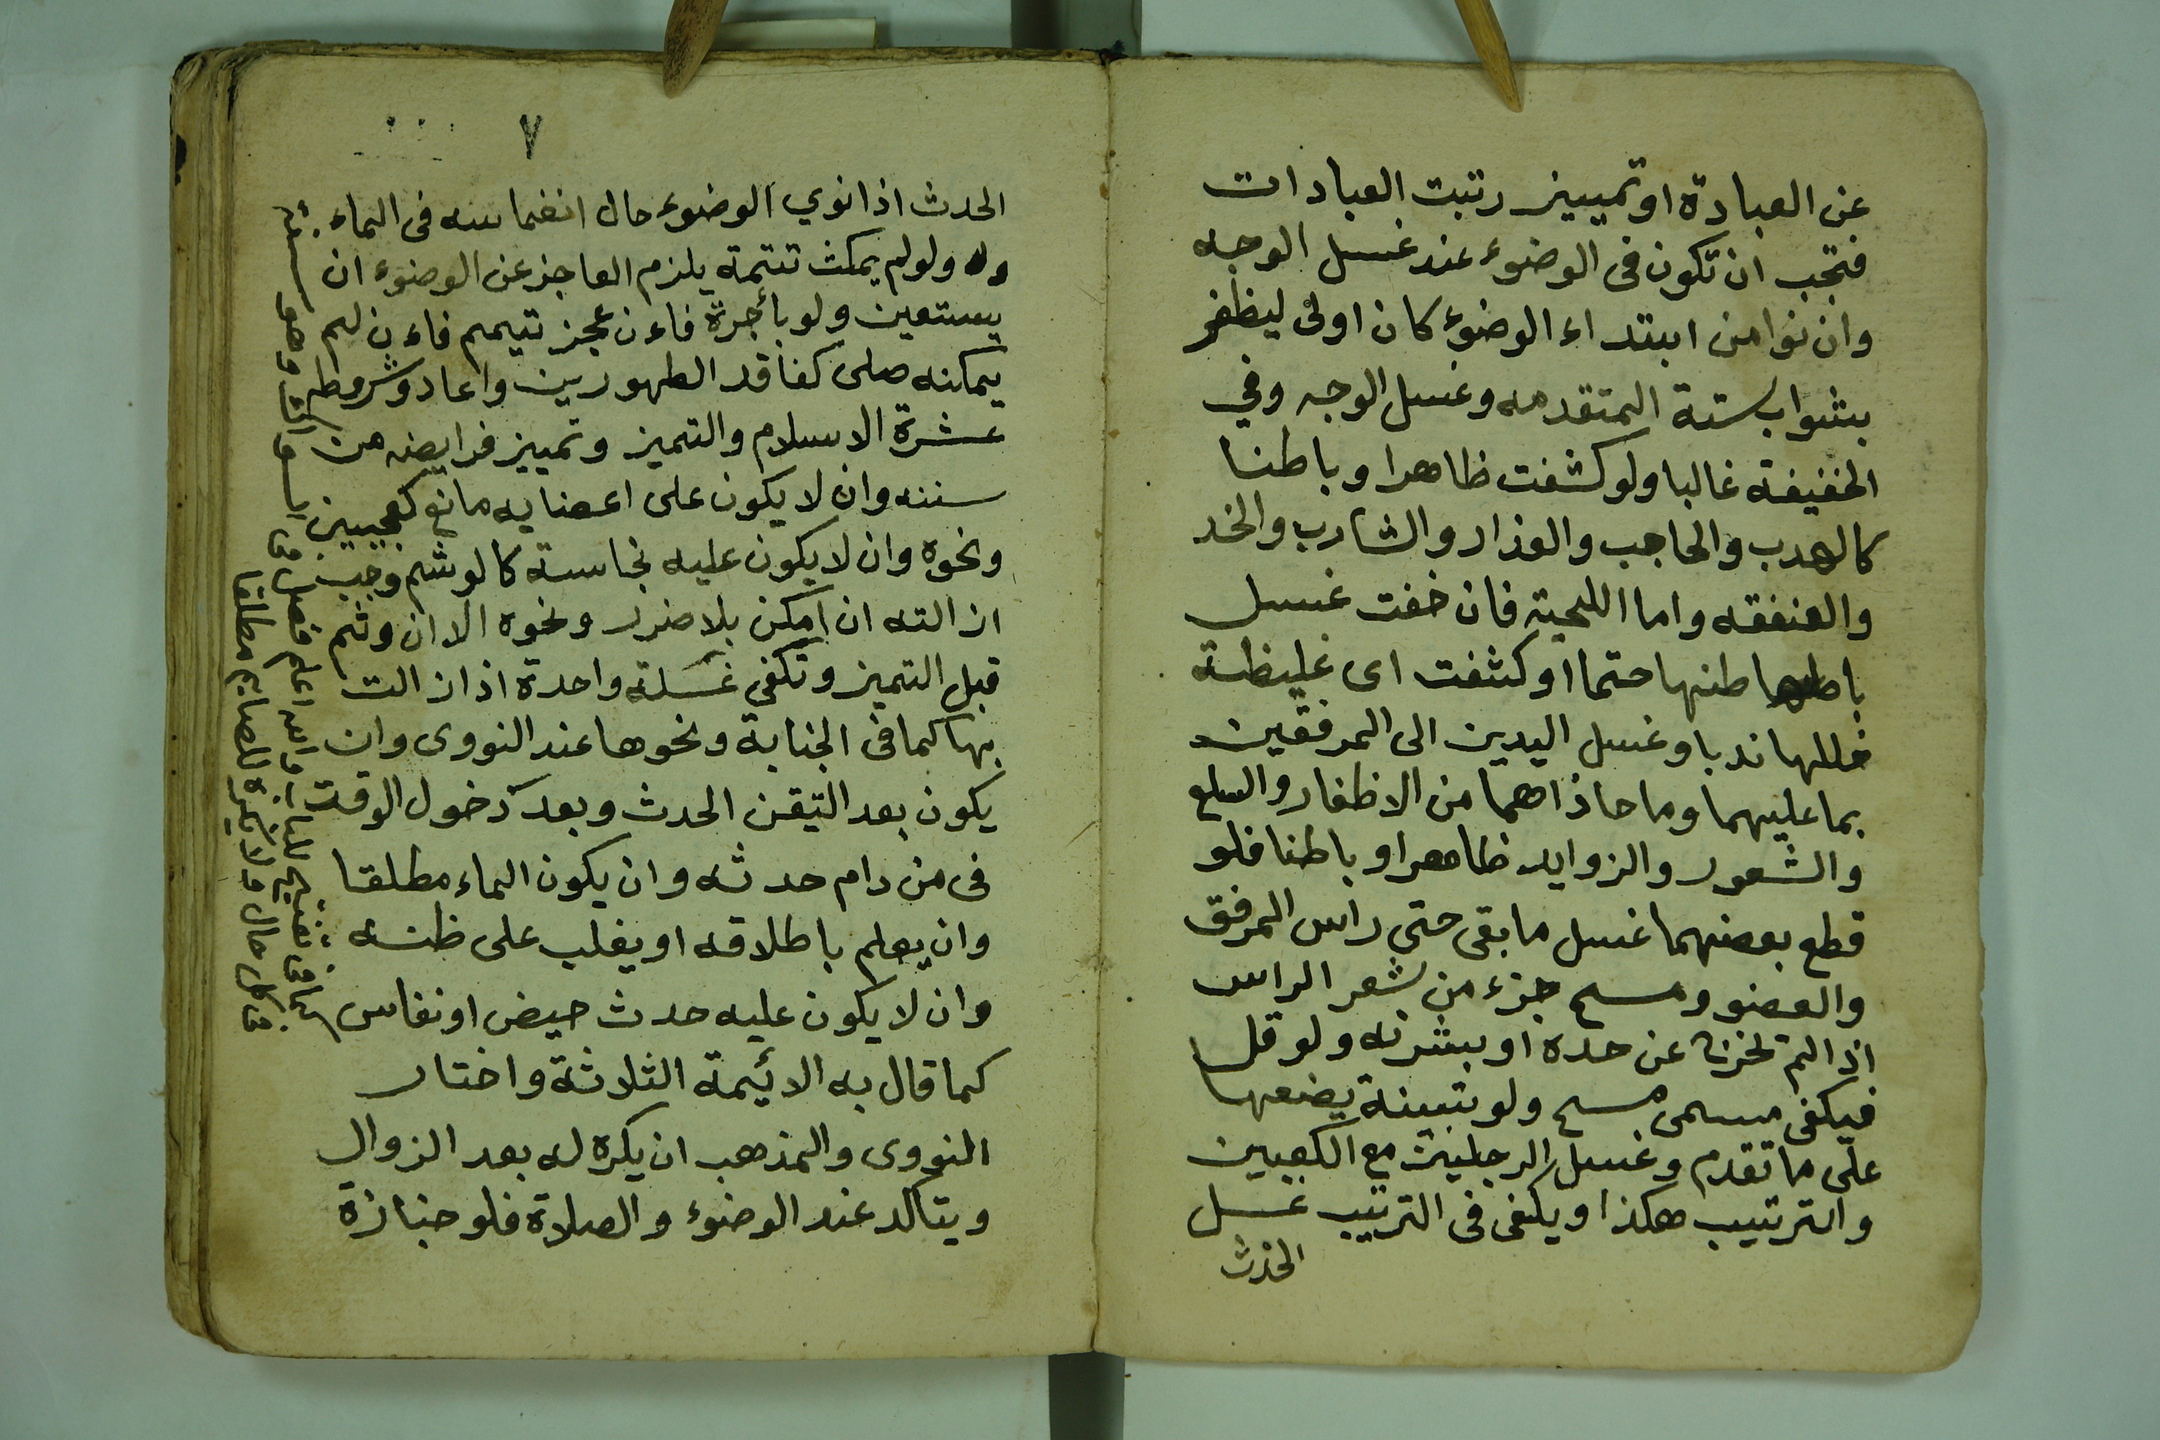 عن العبادة او تمييز رتبت العبادات
فتجب ان تكون فى الوضوء عند غسل الوجه
وان نوا من ابتداء الوضوء كان اولى ليظفر
بثواب ستة المتقدمه وغسل الوجه وفي
الخفيفة غالبا ولو كشفت ظاهرا وباطنا
كالهدب والحاجب والعذار والشارب والخد
والعنفقه واما اللحية فان خفت غسل
باطنها حتما او كثفت اى غليظة
خللها ندبا وغسل اليدين الى المرفقين
بما عليهما وما حاذاهما من الاظفار والسلع
والشعور والزوايد ظاهرا وباطنا فلو
قطع بعضهما غسل ما بقى حتى راس المرفق
والعضو ومسح جزء من شعر الراس
اذا لم تخرج عن حده او بشرته ولو قل
فيكفى مسمى مسح ولو بتبينة يضعها
على ما تقدم وغسل الرجلين مع الكعبين
والترتيب هكذا ويكفى فى الترتيب غسل
الحدث
٧
الحدث اذا نوي الوضوء حال انغماسه فى الماء
ولو لم يمكث تتمة يلزم العاجز عن الوضوء ان
يستعين ولو بأجرة فاءن عجز تيمم فاءن لم
يمكنه صلى كفاقد الطهورين واعاد وشروطه
عشرة الاسلام والتميز وتمييز فرايضه من
سننه وان لا يكون على اعضايه مانع كعجين
ونحوه وان لا يكون عليه نجاسة كالوشم وجب
ازالته ان امكن بلا ضرر ونحوه الا ان وشم
قبل التميز وتكفى غسلة واحدة اذا زالت
بها كما فى الجنابة ونحوها عند النووى وان
يكون بعد التيقن الحدث وبعد دخول الوقت
فى من دام حدثه وان يكون الماء مطلقا
وان يعلم باطلاقه او يغلب على ظنه
وان لا يكون عليه حدث حيض او نفاس
كما قال به الائيمة الثلاثة واختار
النووى والمذهب ان يكره له بعد الزوال
ويتاكد عند الوضوء والصلاة فلو جنازة
فى كل حال ولا يكره للصايم مطلقا